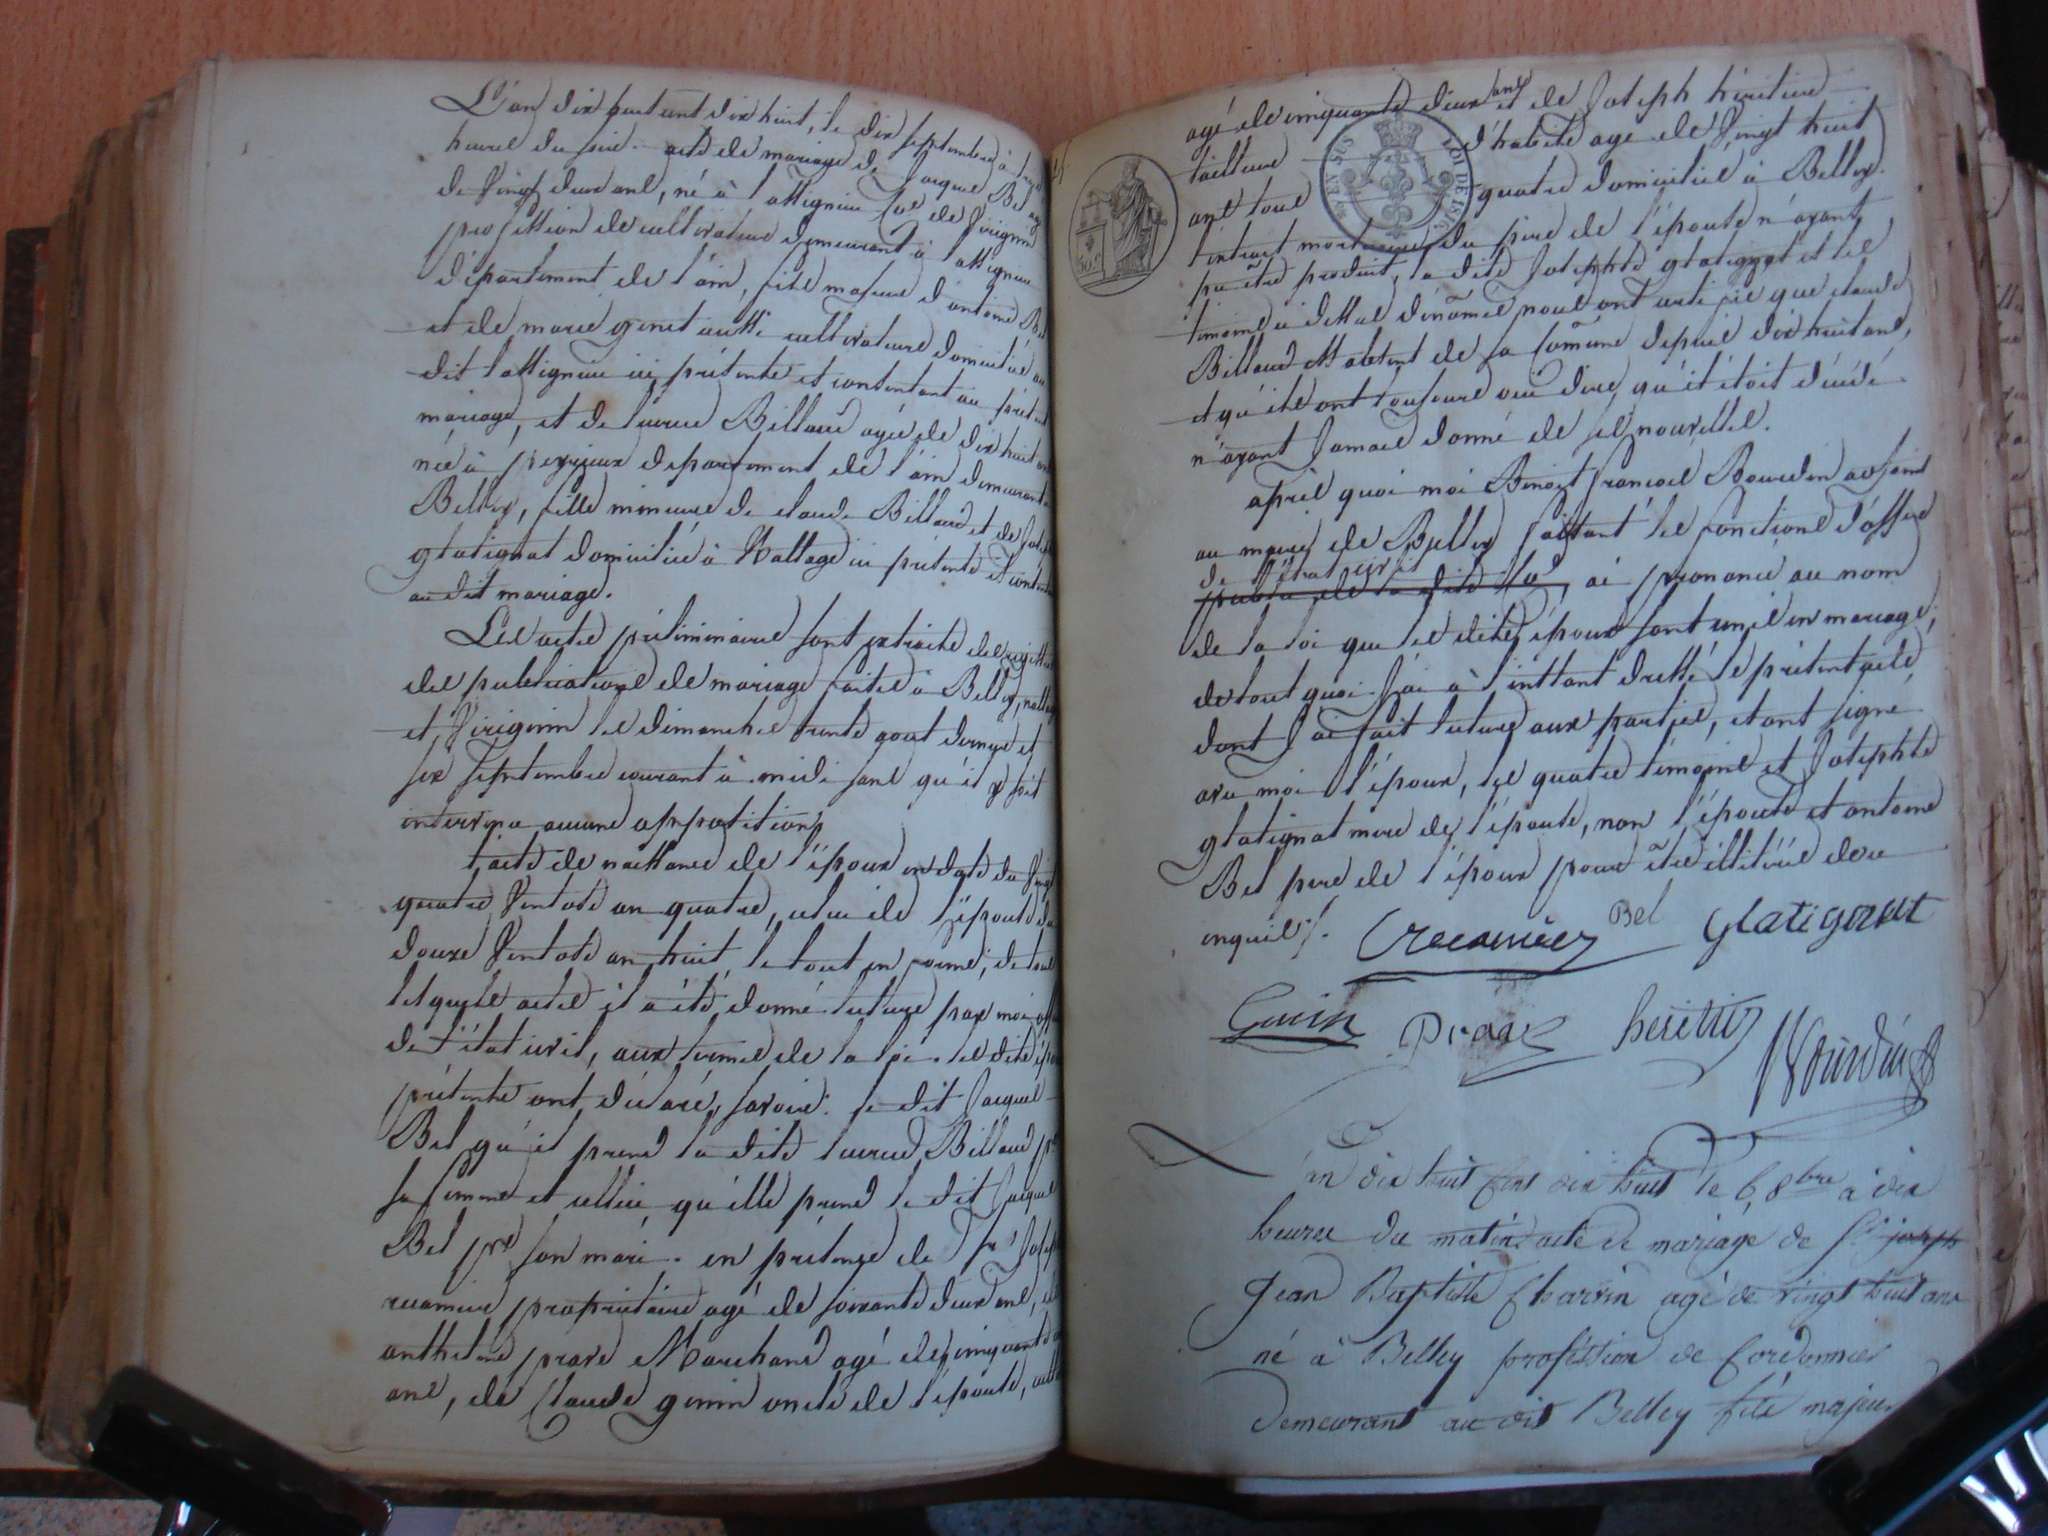 L'an dix huit cent dix huit, le dix septembre à
heures du soir. acte de mariage de Jacques Bel agé
de vingt deux ans, né à Lassignieu Cne de Virignin
profession de cultivateur demeurant à Lassignieu
département de l'ain, fils majeur d'antoine Bel
et de marie genet aussi cultivateurs domiciliés au
dit Lassignieu ici présents et consentant au présent
mariage, et de Billaud agée de dix huit ans
née à peyrieux département de l'ain demeurant
Belley, fille mineure de claude Billaud et de
glatignat domiciliée à Nattage ici présente et
au dit mariage.
Les actes préliminaires sont extraits des registres
des publications de mariage faites à Belley,
et Virignin les dimanches trente aout dernier et
six septembre courant à midi sans qu'il y soit
intervenu aucune opposition,
l'acte de naissance de l'époux en date du vingt
quatre Ventose an quatre, celui de l'épouse du
douze Ventose an huit, le tout en forme, de tous
lesquels actes il a été donné lecture par moi
de l'état civil, aux termes de la loi. les dits
présents ont déclaré, savoir: le dit Jacques
Bel qu'il prend la dite Billaud pr
sa femme et celle ci, qu'elle prend le dit Jacques
Bel pr son mari. en présence de Sr
recamier propriétaire agé de soixante deux ans,
anthelme prave Marchand agé de cinquante
ans, de Claude genin oncle de l'épouse,
agé de cinquante deux ans et de Joseph héritier
tailleur d'habits agé de vingt huit
ans tous quatre domiciliés à Belley.
l'extrait mortuaire du père de l'épouse n'ayant
pu être produit, la dite Josephte glatignat et les
témoins ci dessus dénomés nous ont certifié que claude
Billaud est absent de sa Comune depuis dix huit ans,
et qu'ils ont toujours oui dire qu'il étoit décédé
n'ayant Jamais donné de ses nouvelles.
après quoi moi Benoit françois Bourdin adjoint
au maire de Belley faisant les fonctions d'officier
de l'état civil
public de la dite Cne, ai prononcé au nom
de la loi que les dits époux sont unis en mariage,
de tout quoi J'ai à l'instant dressé le présent acte
dont J'ai fait lecture aux parties, et ont signé
avec moi l'époux, les quatre témoins et Josephte
glatignat mere de l'épouse, non l'épouse et antoine
Bel pere de l'époux pour être illitérés de ce
enquis.
Recamier Bel glatignat
Genin Prave heritier Bourdin
L'an dix huit Cent dix huit le 6 8bre à dix
heures du matin acte de mariage de Sr joseph
Jean Baptiste Charvin agé de vingt huit ans
né à Belley profession de Cordonnier
demeurant au dit Belley fils majeur